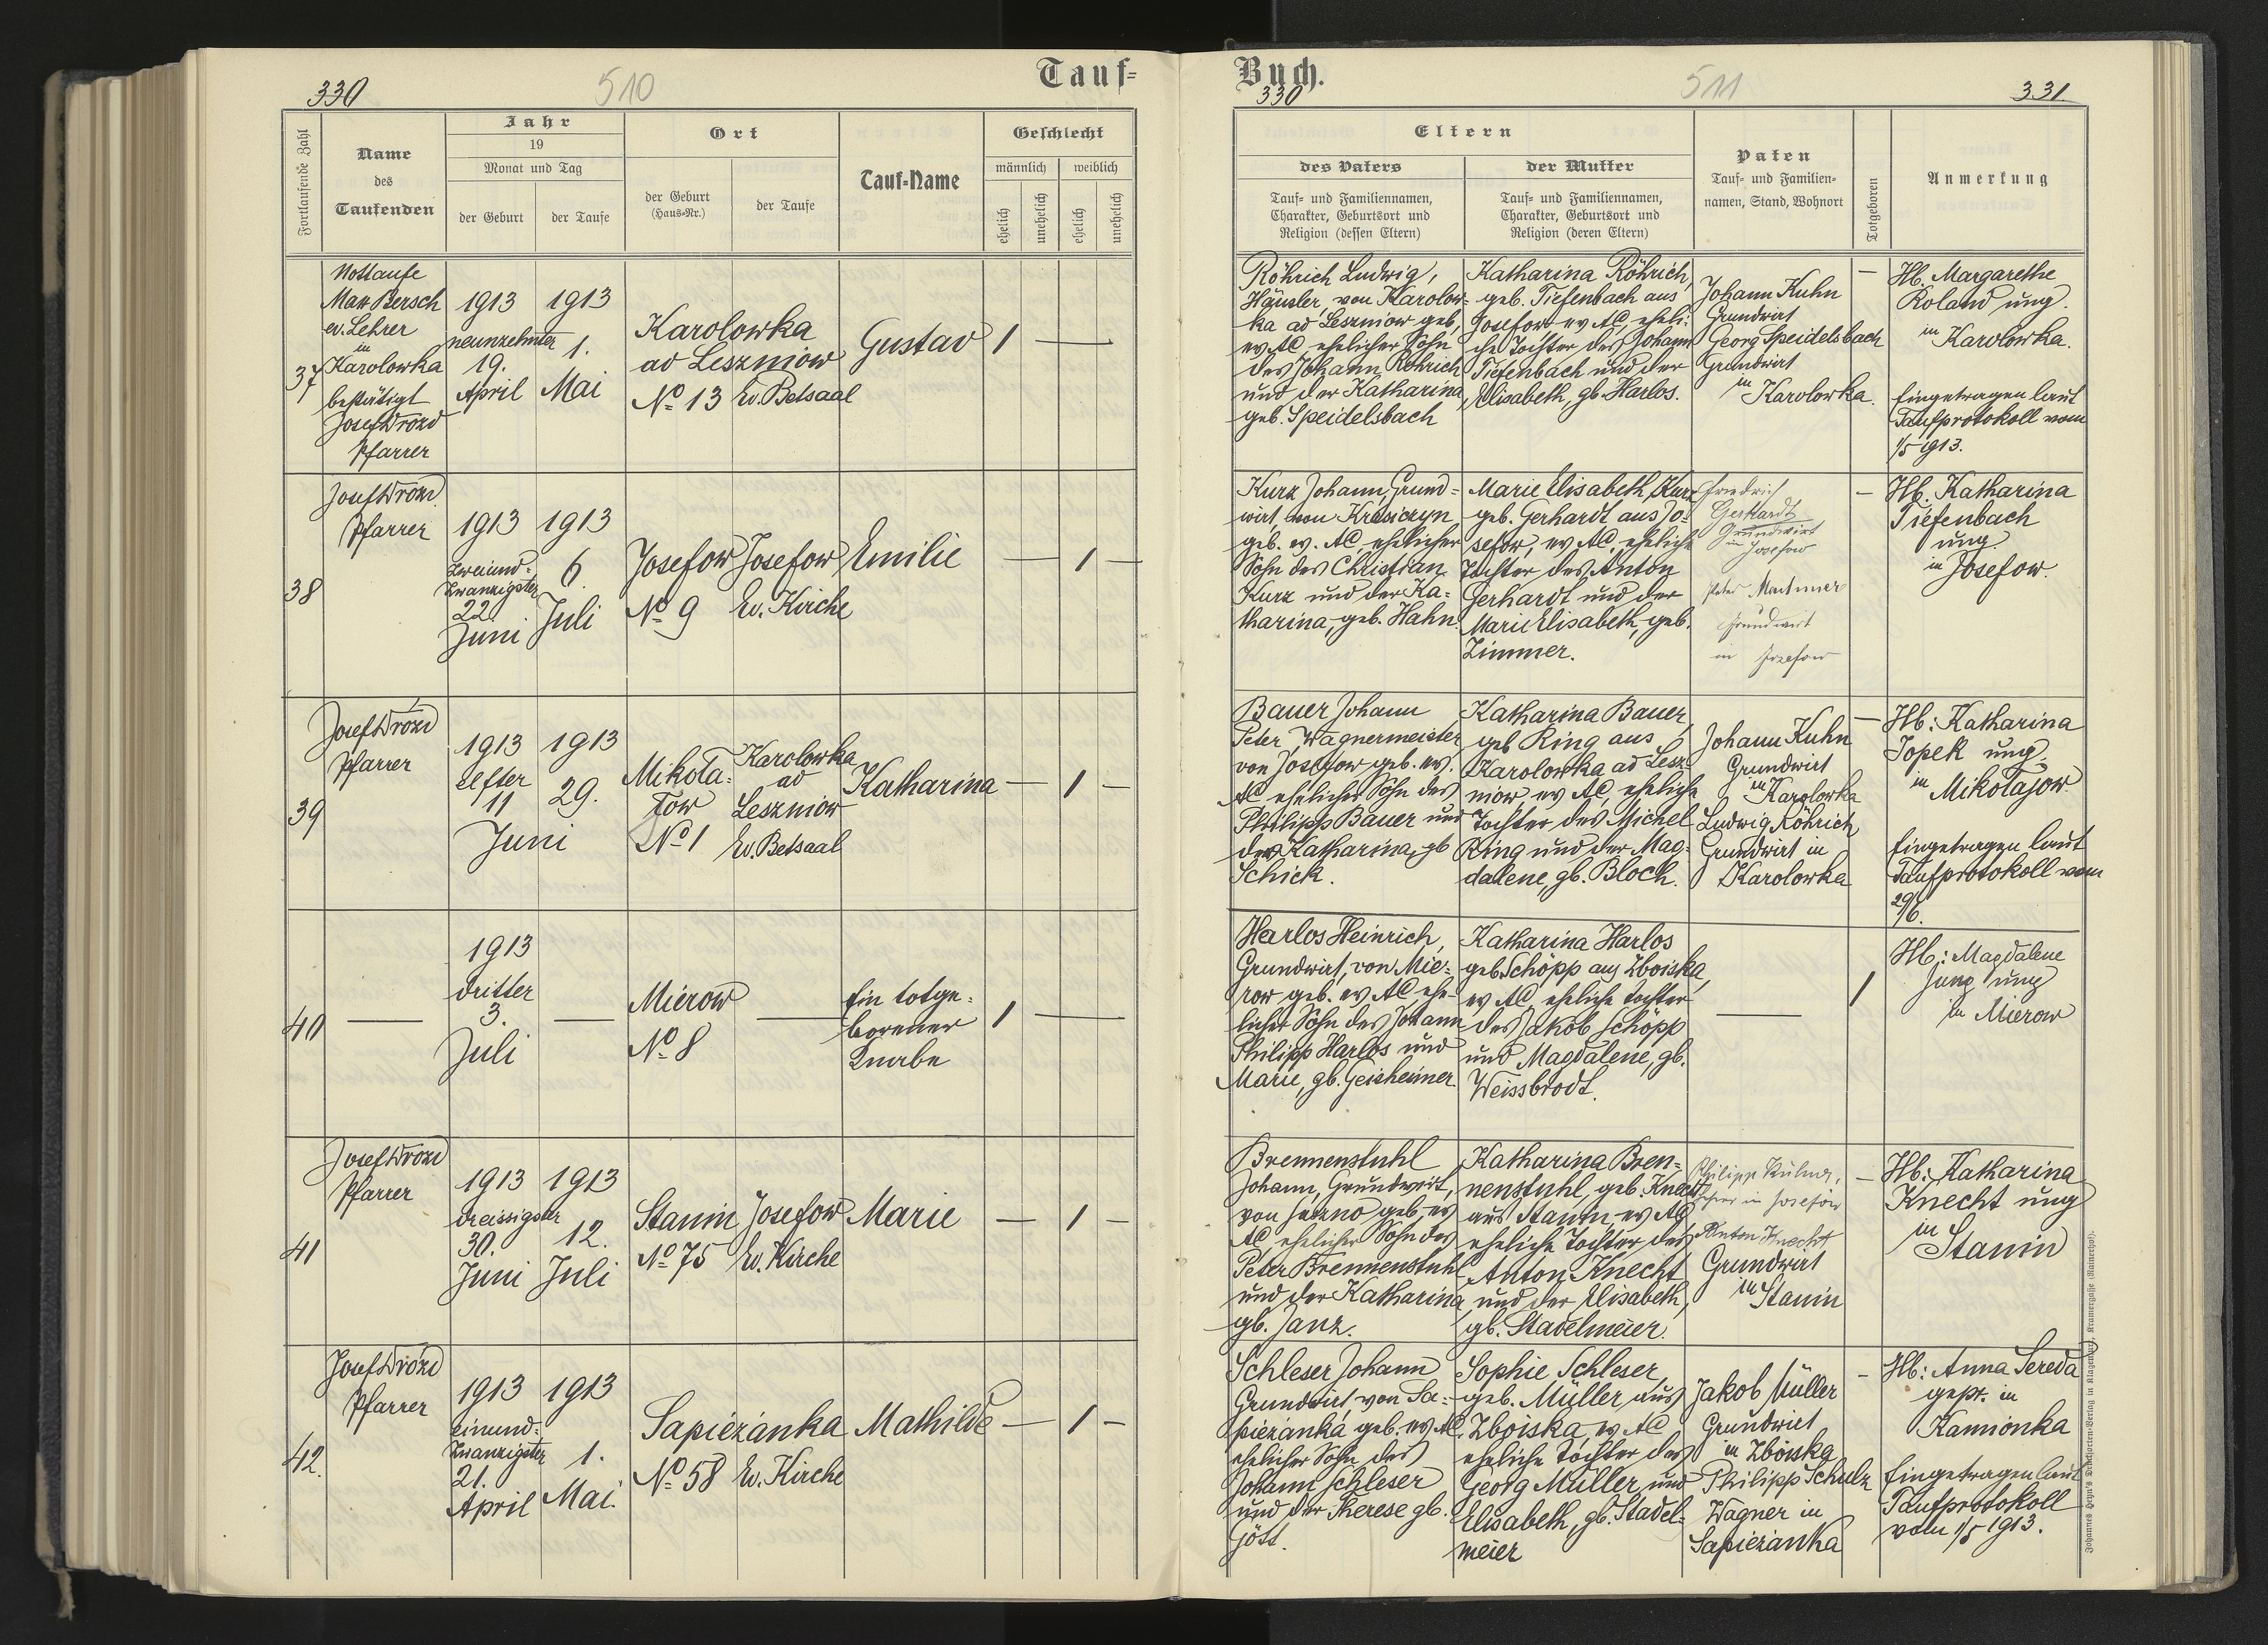 Tauf=
Buch.
330
510
330
511
331
Fortlaufende Zahl
Name
des
Taufenden
Jahr
19
Monat und Tag
der Geburt
der Taufe
Ort
der Geburt
(Haus-Nr.)
der Taufe
Tauf=Name
Geschlecht
männlich
weiblich
ehelich
unehelich
ehelich
unehelich
Eltern
des Vaters
Tauf= und Familiennamen,
Charakter, Geburtsort und
Religion (dessen Eltern)
der Mutter
Tauf= und Familiennamen,
Charakter, Geburtsort und
Religion (deren Eltern)
Paten
Tauf= und Familien=
namen, Stand, Wohnort
Totgeboren
Anmerkung
37
Nottaufe
Max Bersch
ev. Lehrer
in
Karolowka
bestätigt
Josef Drozd
Pfarrer
1913
neunzehnter
19.
April
1913
1.
Mai
Karolowka
ad Leszniow
No 13
Ev. Betsaal
Gustav
1 —
Röhrich Ludwig,
Häusler, von Karolow=
ka ad Leszniow geb,
ev AC ehelicher Sohn
des Johann Röhrich
und der Katharina,
geb. Speidelsbach
Katharina Röhrich,
geb. Tiefenbach aus
Josefow ev AC, eheli=
che Tochter des Johann
Tiefenbach und der
Elisabeth, gb. Harlos.
Johann Kuhn
Grundwirt
Georg Speidelsbach
Grundwirt
in Karolowka.
—
Hb. Margarethe
Roland ung.
in Karolowka.
Eingetragen laut
Taufprotokoll vom
1/5 1913.
38
Josef Drozd
Pfarrer
1913
zweiund=
zwanzigster
22.
Juni
1913
6.
Juli
Josefow
No 9
Josefow
Ev. Kirche
Emilie
— 1 —
Kurz Johann, Grund=
wirt, von Krasiczyn
geb. ev. AC, ehelicher
Sohn des Christian
Kurz und der Ka=
tharina, geb. Hahn.
Marie Elisabeth Kurz
geb. Gerhardt aus Jo=
sefow, ev AC, eheliche
Tochter des Anton
Gerhardt und der
Marie Elisabeth, geb.
Zimmer.
Friedrich
Gerhardt
Grundwirt
in Josefow
Peter
Grundwirt
in Jozefow
—
Hb. Katharina
Tiefenbach
ung.
in Josefow.
39
Josef Drozd
Pfarrer
1913
elfter
11
Juni
1913
29.
Mikola=
jow
No 1
Karolowka
ad
Leszniow
Ev. Betsaal
Katharina
— 1 —
Bauer Johann
Peter, Wagnermeister
von Josefow geb. ev.
AC ehelicher Sohn des
Philipp Bauer und
der Katharina, gb
Schick.
Katharina Bauer,
geb Ring aus
Karolowka ad Lesz=
niow, ev AC, eheliche
Tochter des Michel
Ring und der Mag=
dalene, gb. Bloch.
Johann Kuhn
Grundwirt
in Karolowka
Ludwig Röhrich
Grundwirt in
Karolowka
—
Hb: Katharina
Topek ung.
in Mikołajow.
Eingetragen laut
Taufprotokoll vom
29/6.
40
—
1913
dritter
3.
Juli
—
Mierow
No 8
—
Ein totge=
borener
Knabe
1 —
Harlos Heinrich,
Grundwirt, von Mie=
row geb. ev AC ehe=
licher Sohn des Johann
Philipp Harlos und
Marie, gb. Geisheimer
Katharina Harlos
geb Schöpp aus Zboiska,
ev AC, eheliche Tochter
des Jakob Schöpp
und Magdalene, gb.
Weissbrodt.
—
1
Hb: Magdalene
Jung ung
in Mierow
41
Josef Drozd
Pfarrer
1913
dreissigster
30.
Juni
1913
12.
Juli
Stanin
No 75
Josefow
Ev. Kirche
Marie
— 1 —
Brennenstuhl
Johann, Grundwirt,
geb. ev
AC ehelicher Sohn des
Peter Brennenstuhl
und der Katharina
gb. Janz.
Katharina Bren=
nenstuhl, geb. Knecht
aus Stanin, ev AC
eheliche Tochter des
Anton Knecht
und der Elisabeth,
gb. Stadelmeier.
Philipp
Lehrer in Josefów
Anton Knecht
Grundwirt
in Stanin
—
Hb: Katharina
Knecht ung
in
Stanin
42.
Josef Drozd
Pfarrer
1913
einund=
zwanzigster
21.
April
1913
1.
Mai.
Sapieżanka
No 58
Ev. Kirche
Mathilde
— 1 —
Schleser Johann
Grundwirt von Sa=
pieżanka geb. ev AC,
ehelicher Sohn des
Johann Schleser
und der Therese gb.
Jött.
Sophie Schleser,
geb. Müller aus
Zboiska, ev AC
eheliche Tochter des
Georg Müller, und
Elisabeth, gb. Stadel=
meier
Jakob Müller
Grundwirt
in Zboiska
Philipp Schulz
Wagner in
Sapieżanka
—
Hb: Anna Sereda
gepr. in
Kamionka
Eingetragen laut
Taufprotokoll
vom 1/5 1913.